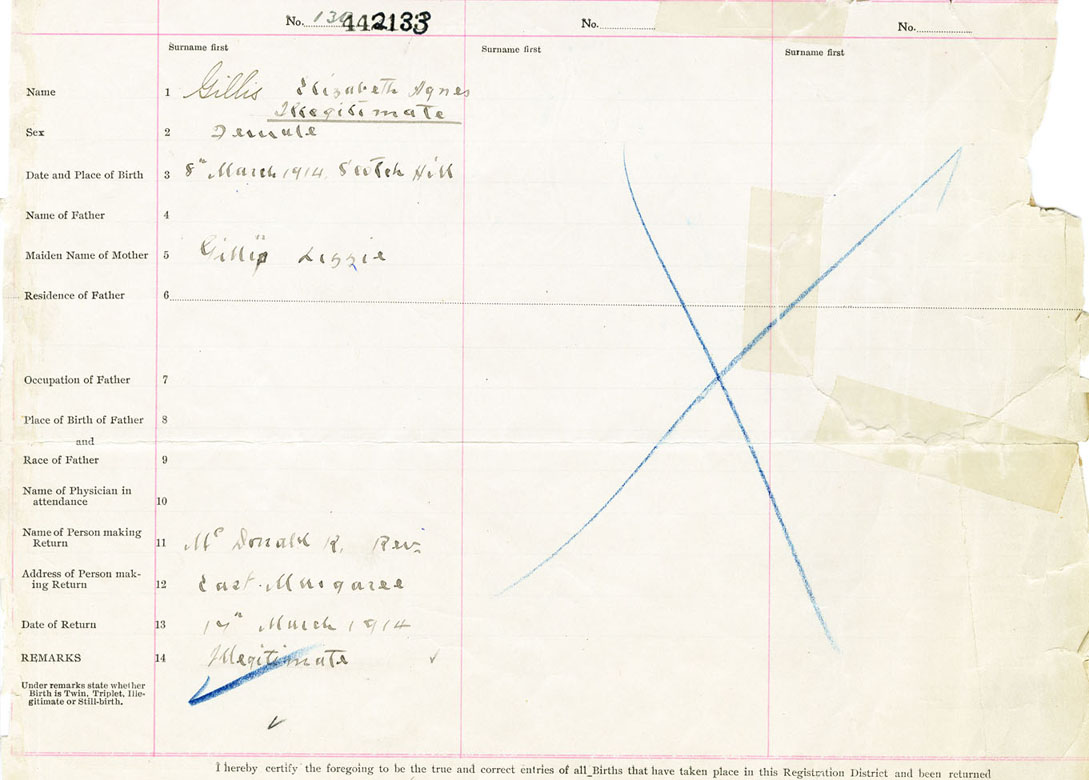 No. 442133 No. No.
Surname first Surname first Surname first
Name 1 Gillis Elizabeth Agnes
Illegitimate
Sex 2 Female
Date and Place of Birth 3 8th March 1914. Scotch Hill
Name of Father 4
Maiden Name of Mother 5 Gillis Lizzie
Residence of Father 6
Occupation of Father 7
Place of Birth of Father 8
and
Race of Father 9
Name of Physician in
attendance 10
Name of Person making
Return 11 Mc Donald R. Rev.
Address of Person mak-
ing Return 12 East Margaree
Date of Return 13 March 1914
REMARKS 14 Illegitimate
Under remarks state whether
Birth is Twin, Triplet, Ille-
gitimate or Still-birth.
I hereby certify the foregoing to be the true and correct entries of all Births that have taken place in this Registration District and been returned